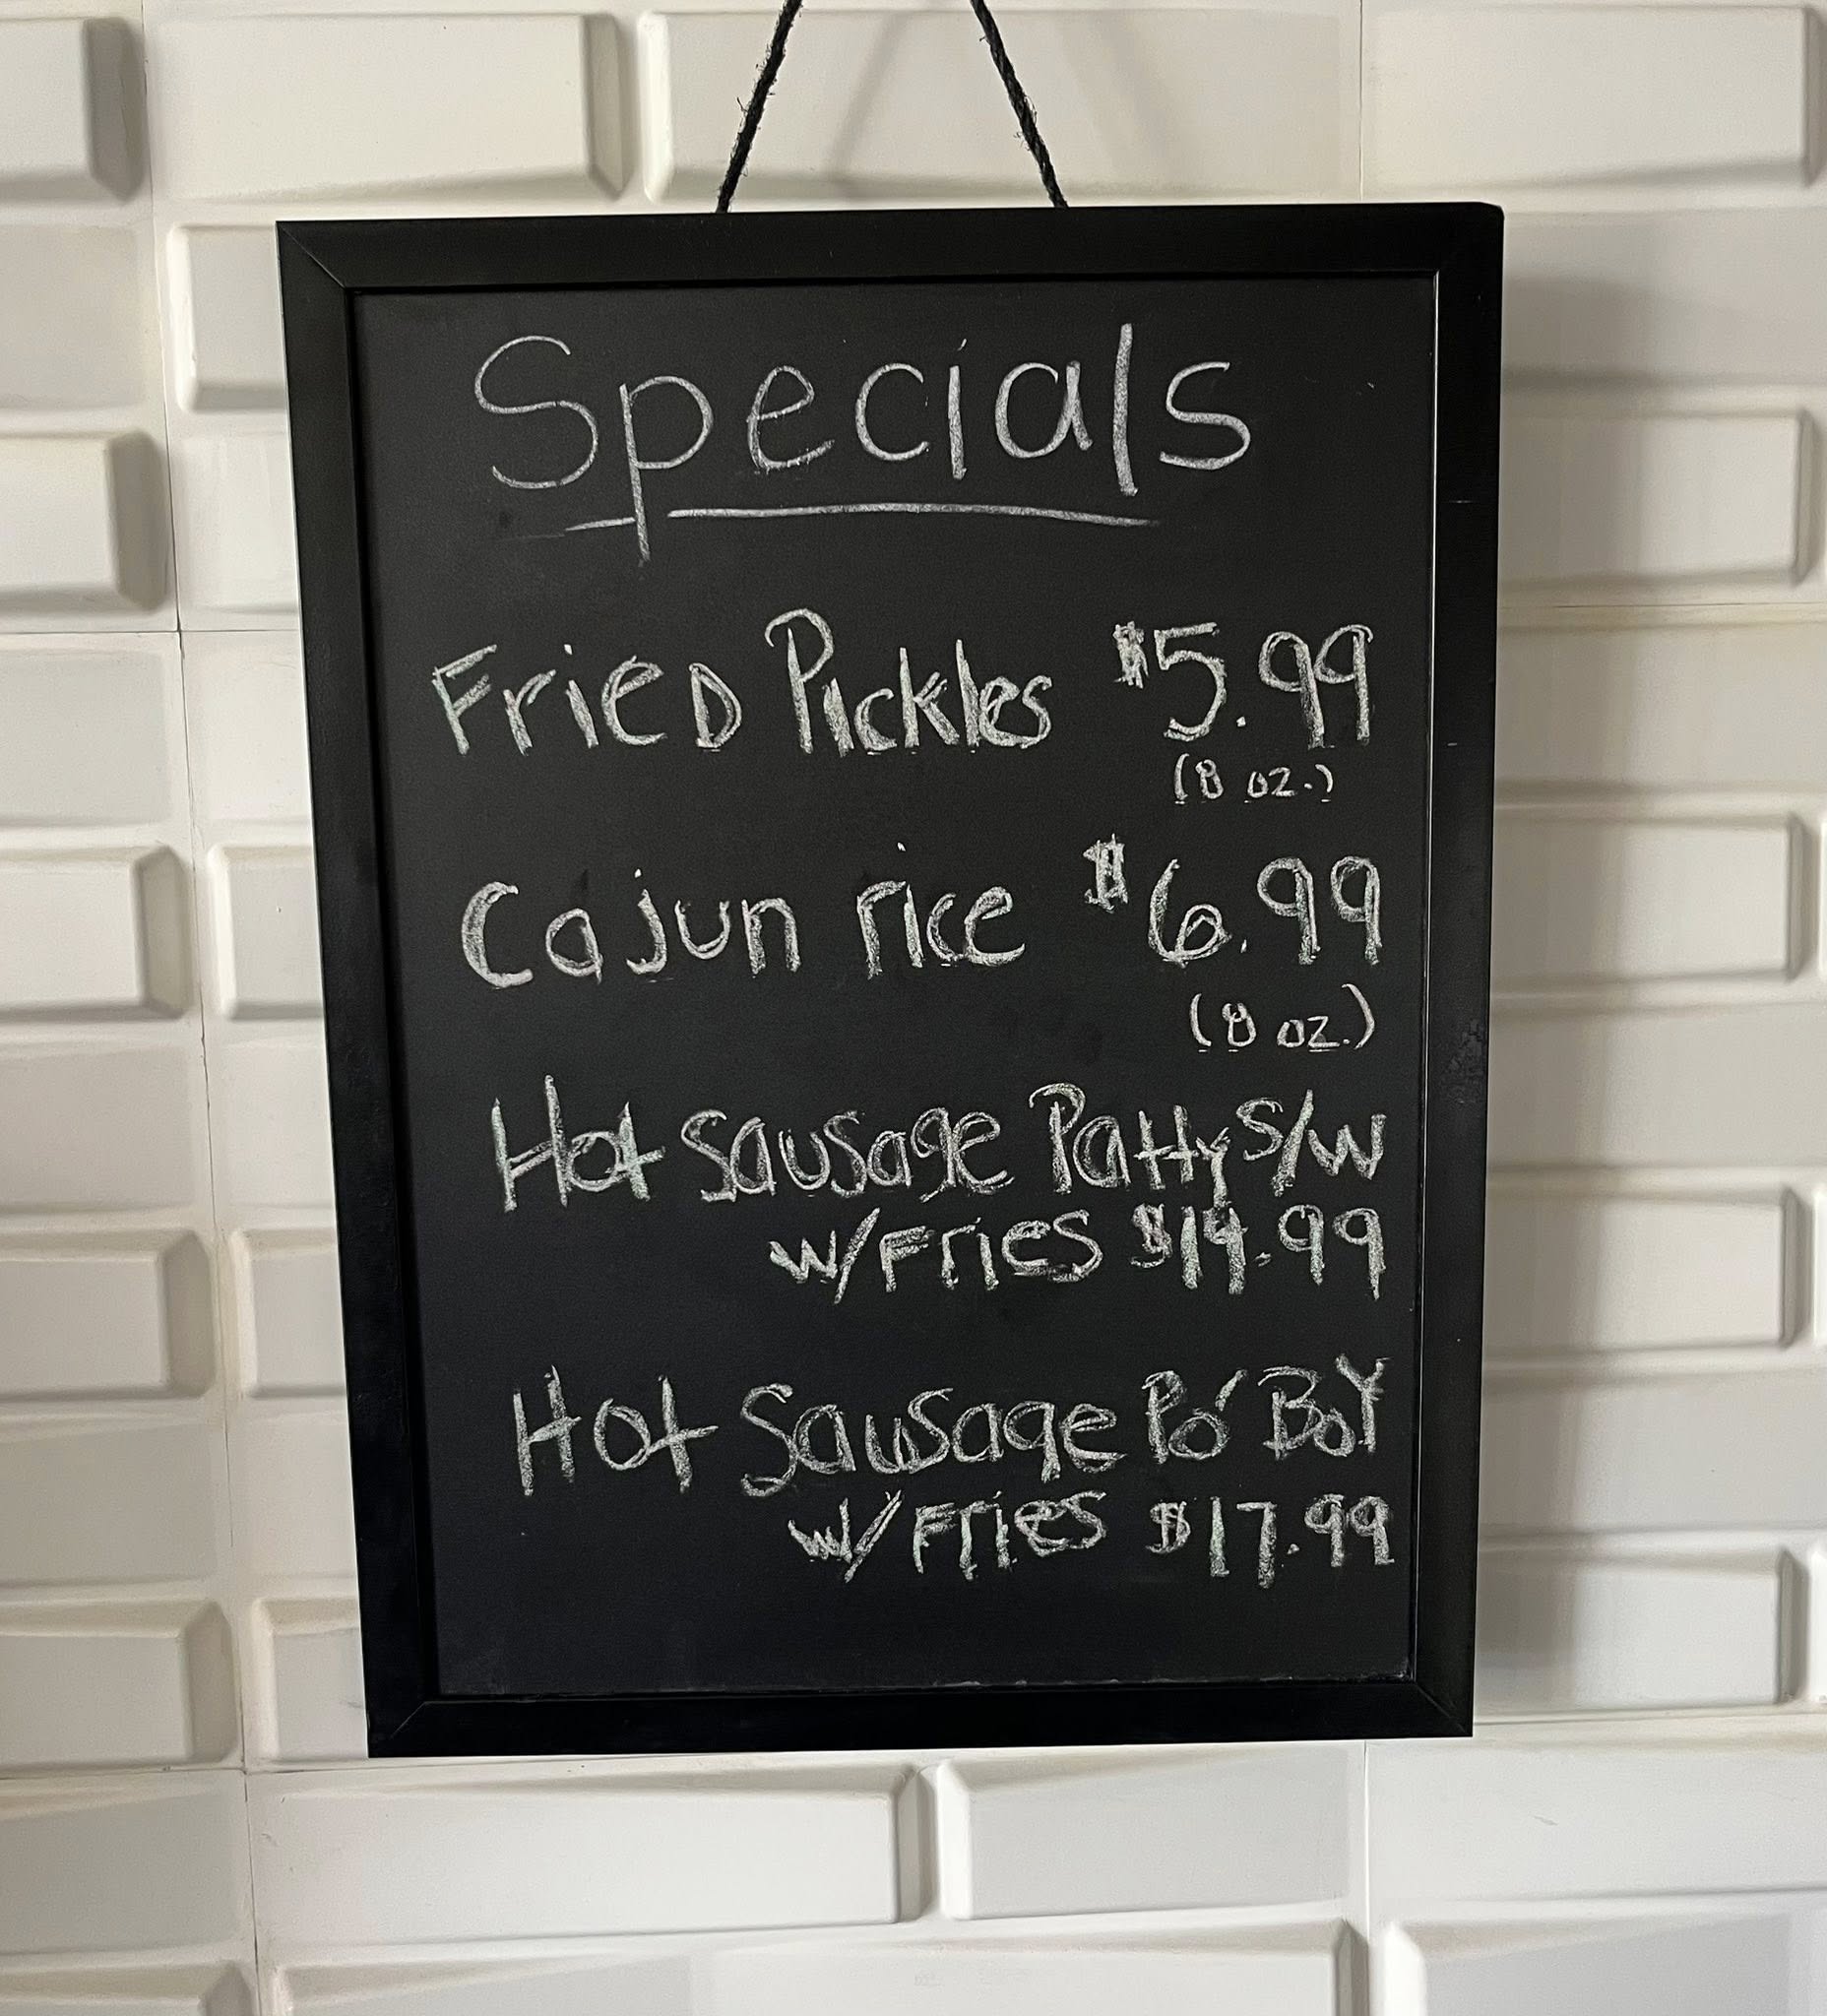 Specials
Fried Pickles $5.99
(8 oz.)
Cajun rice $6.99
(8 oz.)
Hot Sausage Patty S/W
w/Fries $14.99
Hot Sausage Po' Boy
w/Fries $17.99